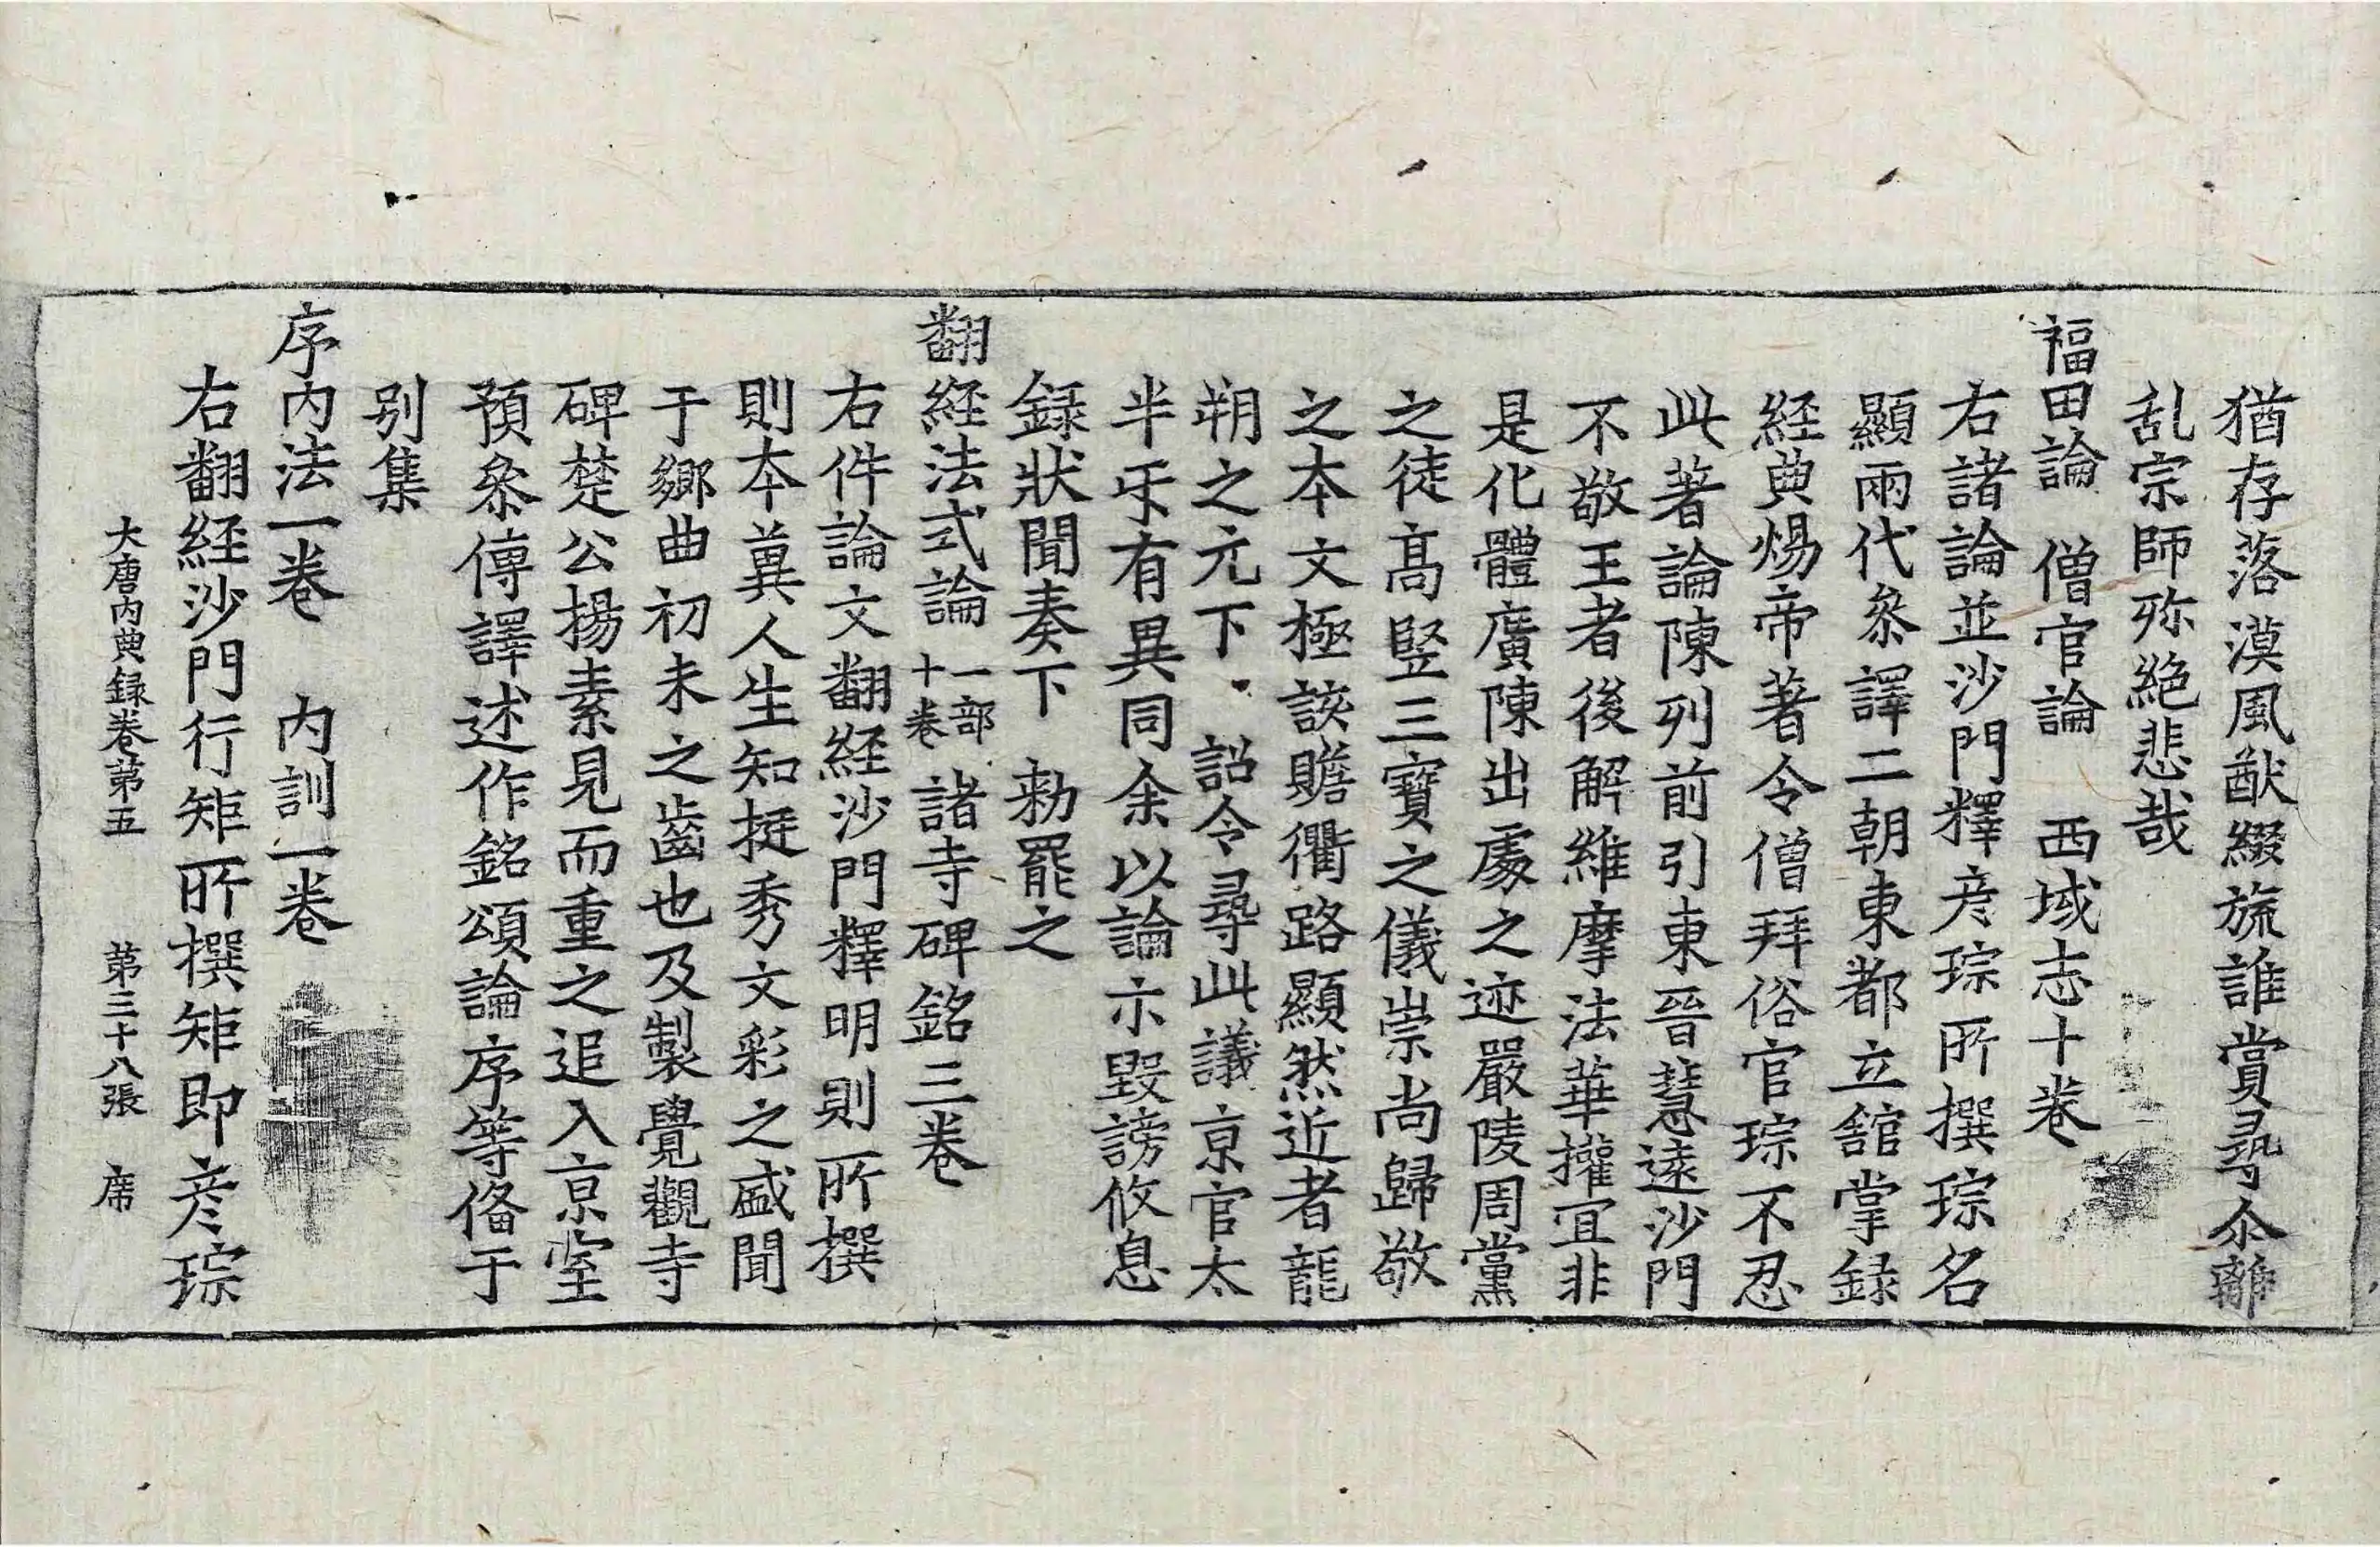 猶存落漠風猷綴旒誰賞尋尒離
乱宗師殄絕悲哉
福田論　僧官論　西域志十卷
右諸論並沙門釋彦琮所撰琮名
顯兩代叅譯二朝東都立舘掌録
経典煬帝著令僧拜俗官琮不忍
此著論陳列前引東晉慧遠沙門
不敬王者後解維摩法華攉冝非
是化體廣陳出處之迹嚴陵周黨
之徒髙竪三寶之儀崇尚歸敬
之本文極該贍衢路顯然近者龍
朔之元下　詔令尋此議京官太
半乐有異同余以論示毀謗攸息
録狀聞奏下　勑罷之
翻経法式論一部十卷　諸寺碑銘三卷
右件論文翻経沙門釋明則所撰
則本兾人生知挺秀文彩之盛聞
于鄉曲初未之齒也及製覺觀寺
碑楚公揚素見而重之追入京室
預叅傳譯述作銘頌論序等俻于
别集
序内法一卷　内訓一卷
右翻経沙門行矩所撰矩即彦琮
大唐内典録卷第五　第三十八張　席